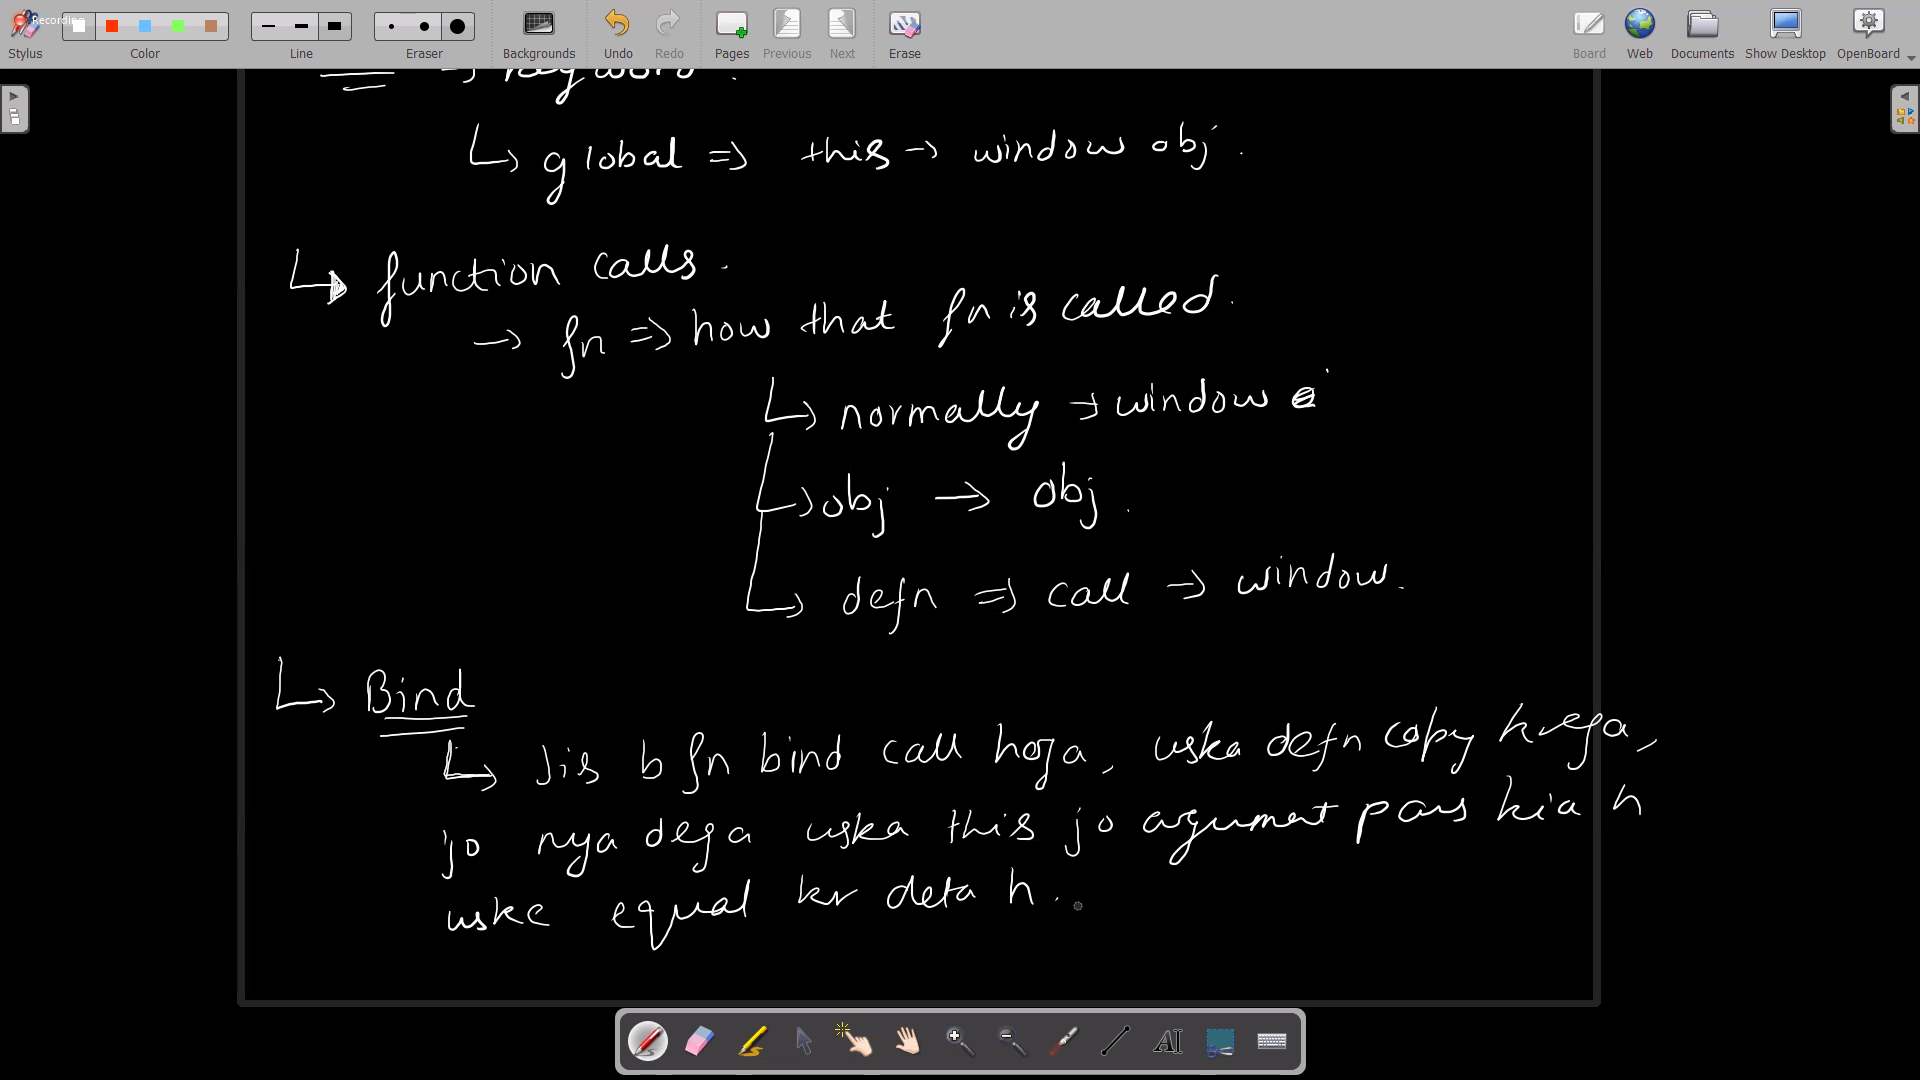 Recording
Stylus
Color
Line
Eraser
Backgrounds
Undo
Redo
Pages
Previous
Next
Erase
Board
Web
Documents
Show Desktop
OpenBoard
→ keyword.
↳ global => this → window obj.
↳ function calls.
→ fn => how that fn is called.
↳ normally → window
↳ obj → obj.
↳ defn => call → window.
↳ Bind
↳ Jis b fn bind call hoga, uska defn copy krega,
jo nya dega uska this jo argument pass kia h
uske equal kr deta h.